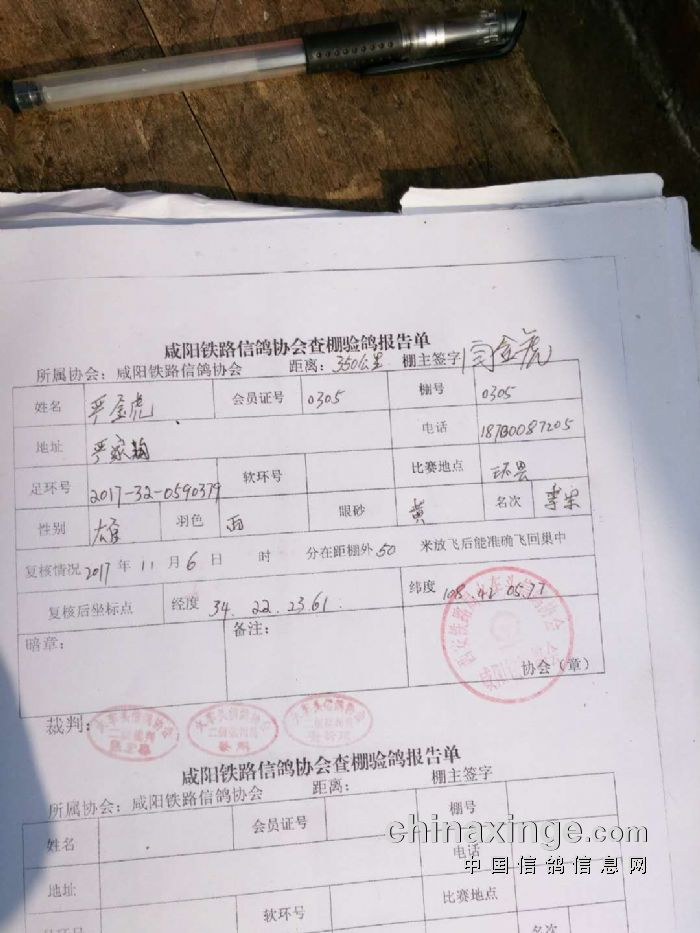 咸阳铁路信鸽协会查棚验鸽报告单
所属协会：咸阳铁路信鸽协会 距离：350公里 棚主签字 闫金虎
姓名 会员证号 0305 棚号 0305
地址 电话 18700087205
足环号 2017-32-0590379 软环号 比赛地点 环县
性别 羽色 雨 眼砂 黄 名次
复核情况 2017 年 11 月 6 日 时 分在距棚外 50 米放飞后能准确飞回巢中
复核后坐标点 经度 34.22.2361 纬度 108.42 05.77
暗章： 备注： 协会（章）
裁判：
咸阳铁路信鸽协会查棚验鸽报告单
所属协会：咸阳铁路信鸽协会 距离： 棚主签字
姓名 会员证号 棚号
电话
地址
软环号 比赛地点
名次
chinaxinge.com
中国信鸽信息网